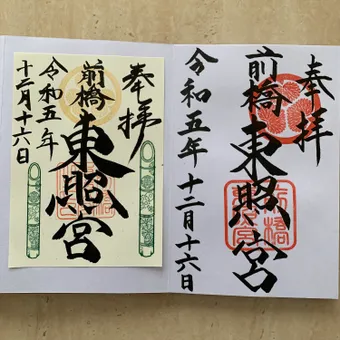 奉拝
前橋
東照宮
令和五年
十二月十六日
奉拝
前橋
東照宮
令和五年十二月十六日